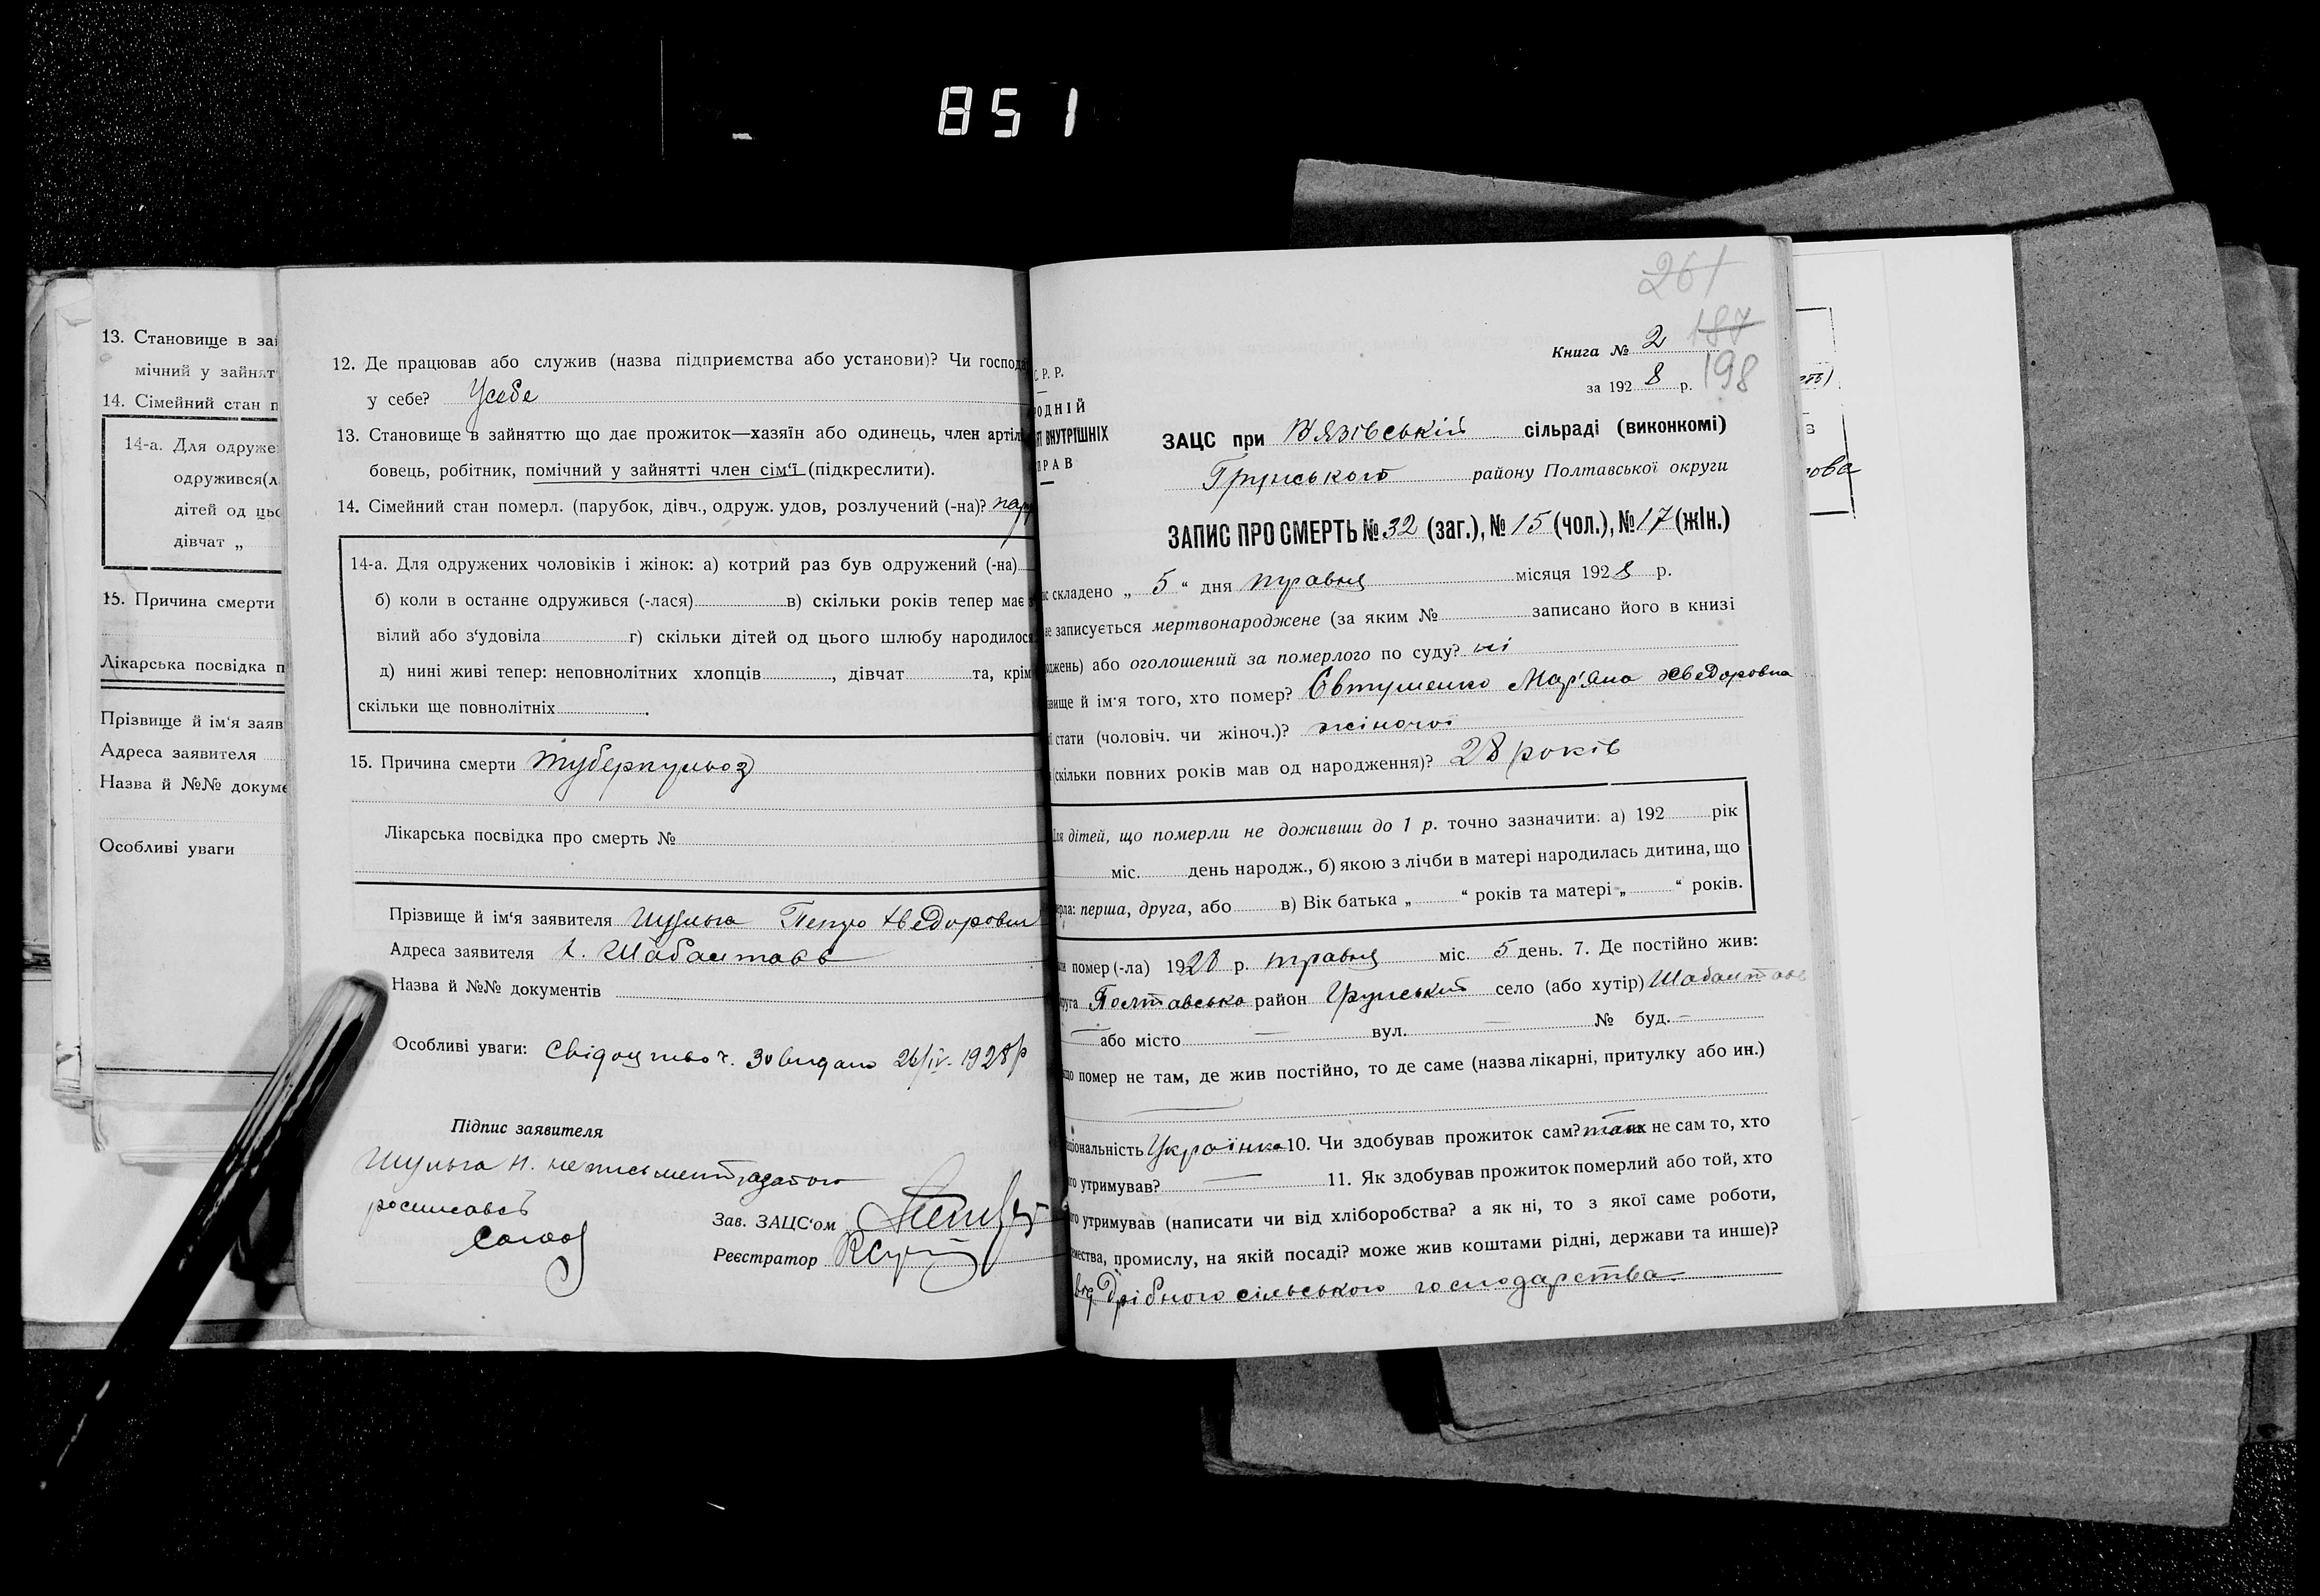 851
13. Становище в за
мічний у зайнят
14. Сімейний стан п
14-а. Для одруже
одружився(л
дітей од цьо
дівчат „
15. Причина смерти
Лікарська посвідка п
Прізвище й ім'я заяв
Адреса заявителя
Назва й №№ докуме
Особливі уваги
12. Де працював або служив (назва підприємства або установи)? Чи господа
у себе? Усебе
13. Становище в зайняттю що дає прожиток—хазяїн або одинець, член артіл
бовець, робітник, помічний у зайнятті член сім'ї (підкреслити).
14. Сімейний стан померл. (парубок, дівч., одруж. удов, розлучений (-на)? пар
14-а. Для одружених чоловіків і жінок: а) котрий раз був одружений (-на)
б) коли в останнє одружився (-лася) в) скільки років тепер має з
вілий або з'удовіла г) скільки дітей од цього шлюбу народилося
д) нині живі тепер: неповнолітних хлопців , дівчат та, крім
скільки ще повнолітніх .
15. Причина смерти туберкульоз
Лікарська посвідка про смерть №
Прізвище й ім'я заявителя Шульга Петро Хведорович
Адреса заявителя х. Шабантове
Назва й №№ документів
Особливі уваги: Свідоцтво ч. 30 видано 26/IV. 1928 р
Підпис заявителя
Шульга П. неписьмений, за того
росписавсь
Зав. ЗАЦС'ом
Реєстратор
261
187
198
Книга № 2
за 1928 р.
С. Р. Р.
ОДНІЙ
ВНУТРІШНІХ
РАВ
ЗАЦС при В'язівській сільраді (виконкомі)
Грунського району Полтавської округи
ЗАПИС ПРО СМЕРТЬ № 32 (заг.), № 15 (чол.), № 17 (жін.)
складено „ 5 “ дня травня місяця 1928 р.
записується мертвонароджене (за яким № записано його в книзі
джень) або оголошений за померлого по суду? ні
вище й ім'я того, хто помер? Євтушенко Мар'яна Хведоровна
стати (чоловіч. чи жіноч.)? жіночої
(скільки повних років мав од народження)? 28 років
дітей, що померли не доживши до 1 р. точно зазначити: а) 192 рік
міс. день народж., б) якою з лічби в матері народилась дитина, що
рла: перша, друга, або в) Вік батька „ “ років та матері „ “ років.
помер (-ла) 1928 р. травня міс. 5 день. 7. Де постійно жив:
руга Полтавська район Грунський село (або хутір) Шабантове
або місто — вул. — № буд. —
помер не там, де жив постійно, то де саме (назва лікарні, притулку або ин.)
ціональність Українка 10. Чи здобував прожиток сам? так не сам то, хто
утримував? — 11. Як здобував прожиток померлий або той, хто
утримував (написати чи від хліборобства? а як ні, то з якої саме роботи,
ества, промислу, на якій посаді? може жив коштами рідні, держави та инше)?
від дрібного сільського господарства.